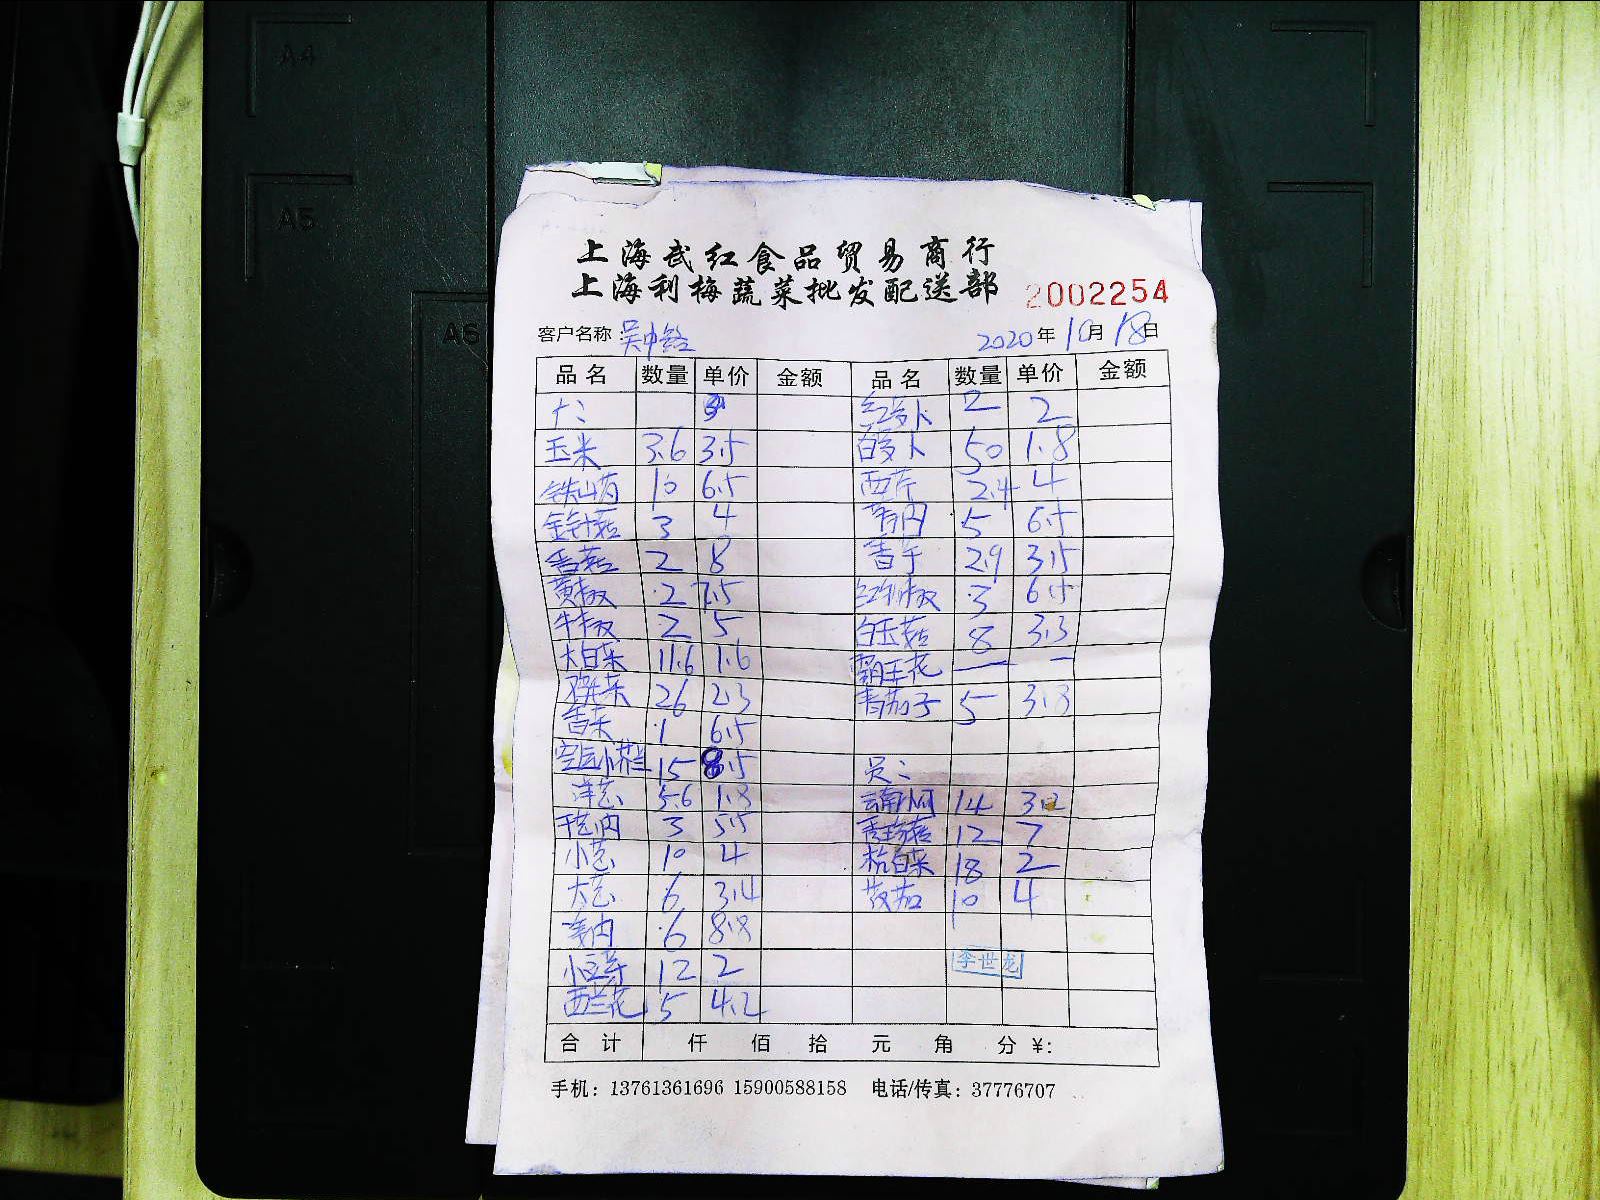 A4
A5
A6
上海武红食品贸易商行
上海利梅蔬菜批发配送部
2002254
客户名称：吴中路
2020年10月18日
品名 数量 单价 金额 品名 数量 单价 金额
红萝卜 2 2
玉米 3.6 3.5 白萝卜 50 1.8
铁山药 10 6.5 西芹 2.4 4
金针菇 3 4 5 6.5
香菇 2 8 香干 2.9 3.5
黄椒 2 7.5 红椒 3 6.5
牛椒 2 5 白玉菇 8 3.3
大白菜 11.6 1.6 霸王花 — —
26 2.3 青茄子 5 3.8
香菜 1 6.5
小芥兰 15 8.5 员：
洋 5.6 1.8 云南小 14 3.2
3 5.5 秀珍菇 12 7
小 10 4 杭白菜 18 2
大 6 3.4 10 4
6 8.8
小豆芽 12 2 李世龙
西兰花 5 4.2
合计 仟 佰 拾 元 角 分 ¥:
手机：13761361696 15900588158 电话/传真：37776707